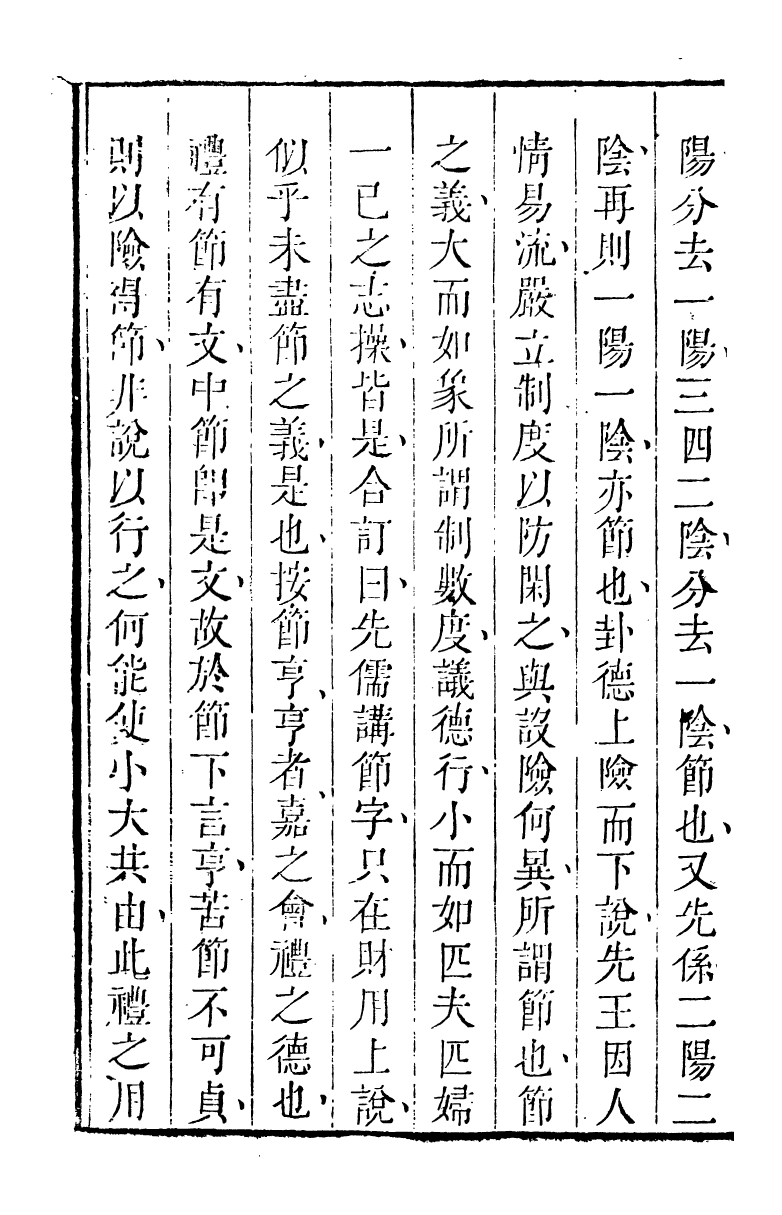 陽分去一陽、三四二陰、分去一陰、節也、又先係二陽二
陰、再則一陽一陰、亦節也、卦德上險而下說、先王因人
情易流、嚴立制度以防閑之、與設險何異、所謂節也、節
之義、大而如象所謂制數度、議德行、小而如匹夫匹婦
一已之志操、皆是、合訂曰、先儒講節字、只在財用上說、
似乎未盡節之義、是也、按節亨、亨者、嘉之會、禮之德也、
禮有節有文、中節卽是文、故於節下言亨、苦節不可貞、
則以險得節、非說以行之、何能使小大共由、此禮之用